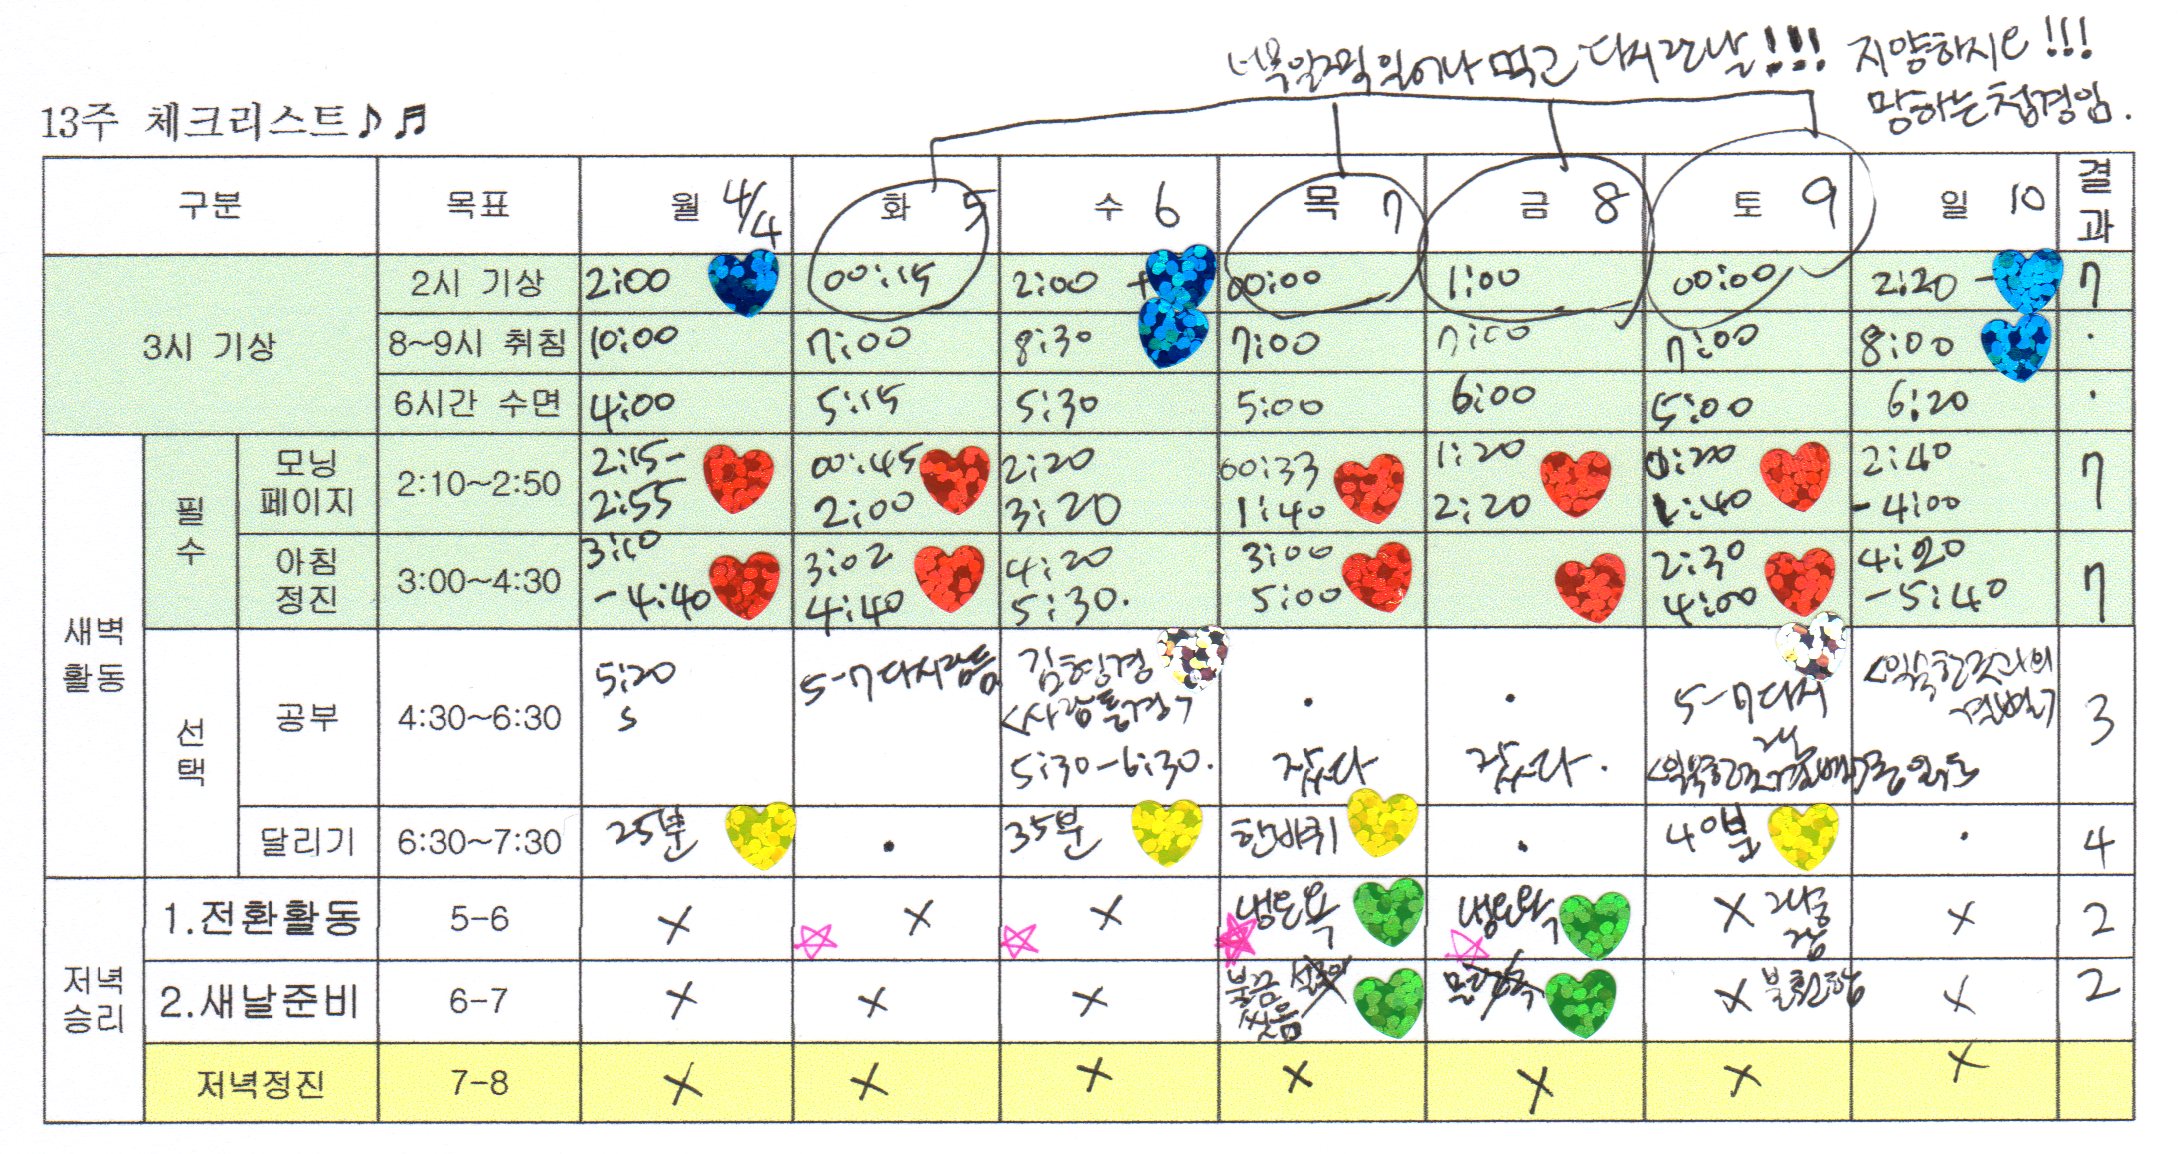 너무 일찍 일어나 먹고 다시 잔 날!!! 지양하시오!!!
망하는 첩경임.
13주 체크리스트♪♬
구분 목표 월 4/4 화 5 수 6 목 7 금 8 토 9 일 10 결과
3시 기상
2시 기상 2:00 00:15 2:00 + 00:00 1:00 00:00 2:20 - 7
8~9시 취침 10:00 7:00 8:30 7:00 7:00 7:00 8:00 ·
6시간 수면 4:00 5:15 5:30 5:00 6:00 5:00 6:20 ·
새벽 활동
필수
모닝 페이지 2:10~2:50 2:15-2:55 00:45 2:00 2:20 3:20 00:33 1:40 1:20 2:20 1:40 2:40-4:00 7
아침 정진 3:00~4:30 3:10-4:40 3:02 4:40 4:20 5:30. 3:00 5:00 2:30 4:00 4:20-5:40 7
선택
공부 4:30~6:30 5:20 5-7 다시 잠듦 김형경 <사랑을 5:30-6:30. · 잤다 · 잤다. 5-7 다시 잠 <익숙한 것과의 결별> 3
달리기 6:30~7:30 25분 · 35분 한바퀴 · 40분 · 4
저녁 승리
1.전환활동 5-6 × × × 냉온욕 냉온욕 × × 2
2.새날준비 6-7 × × × × × 2
저녁정진 7-8 × × × × × × ×